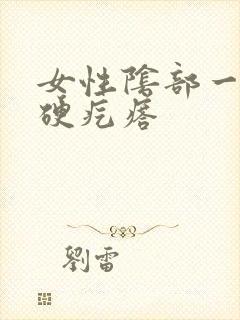 女性陰部一
硬疙瘩
劉雷